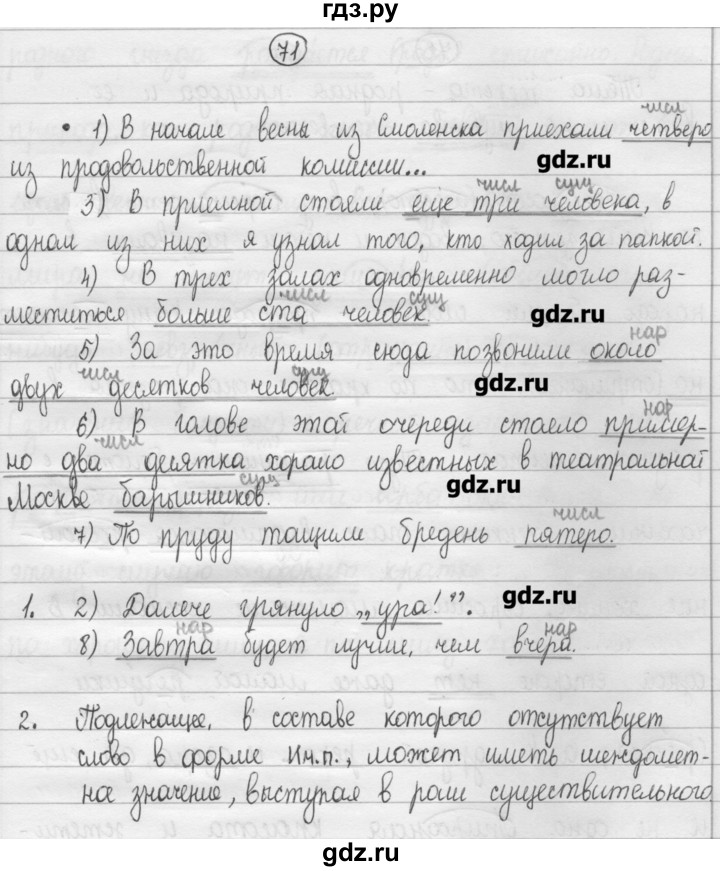 гдз.ру
71
числ
1) В начале весны из Смоленска приехали четверо
из продовольственной комиссии...
gdz.ru
числ сущ
3) В приемной стояли еще три человека, в
одном из них я узнал того, кто ходил за папкой.
4) В трех залах одновременно могло раз-
числ сущ
меститься больше ста человек.
gdz.ru
нар
5) За это время сюда позвонили около
числ сущ
двух десятков человек
gdz.ru
нар
6) В голове этой очереди стояло пример-
числ
но два десятка хорошо известных в театральной
сущ
Москве барышников.
gdz.ru
числ
7) По пруду тащили бредень пятеро.
1. 2) Далече грянуло „ура!”.
gdz.ru
нар нар
8) Завтра будет лучше, чем вчера.
2. Подлежащее, в составе которого отсутствует
слово в форме Им.п., может иметь междомет-
ное значение, выступая в роли существительного
gdz.ru
gdz.ru